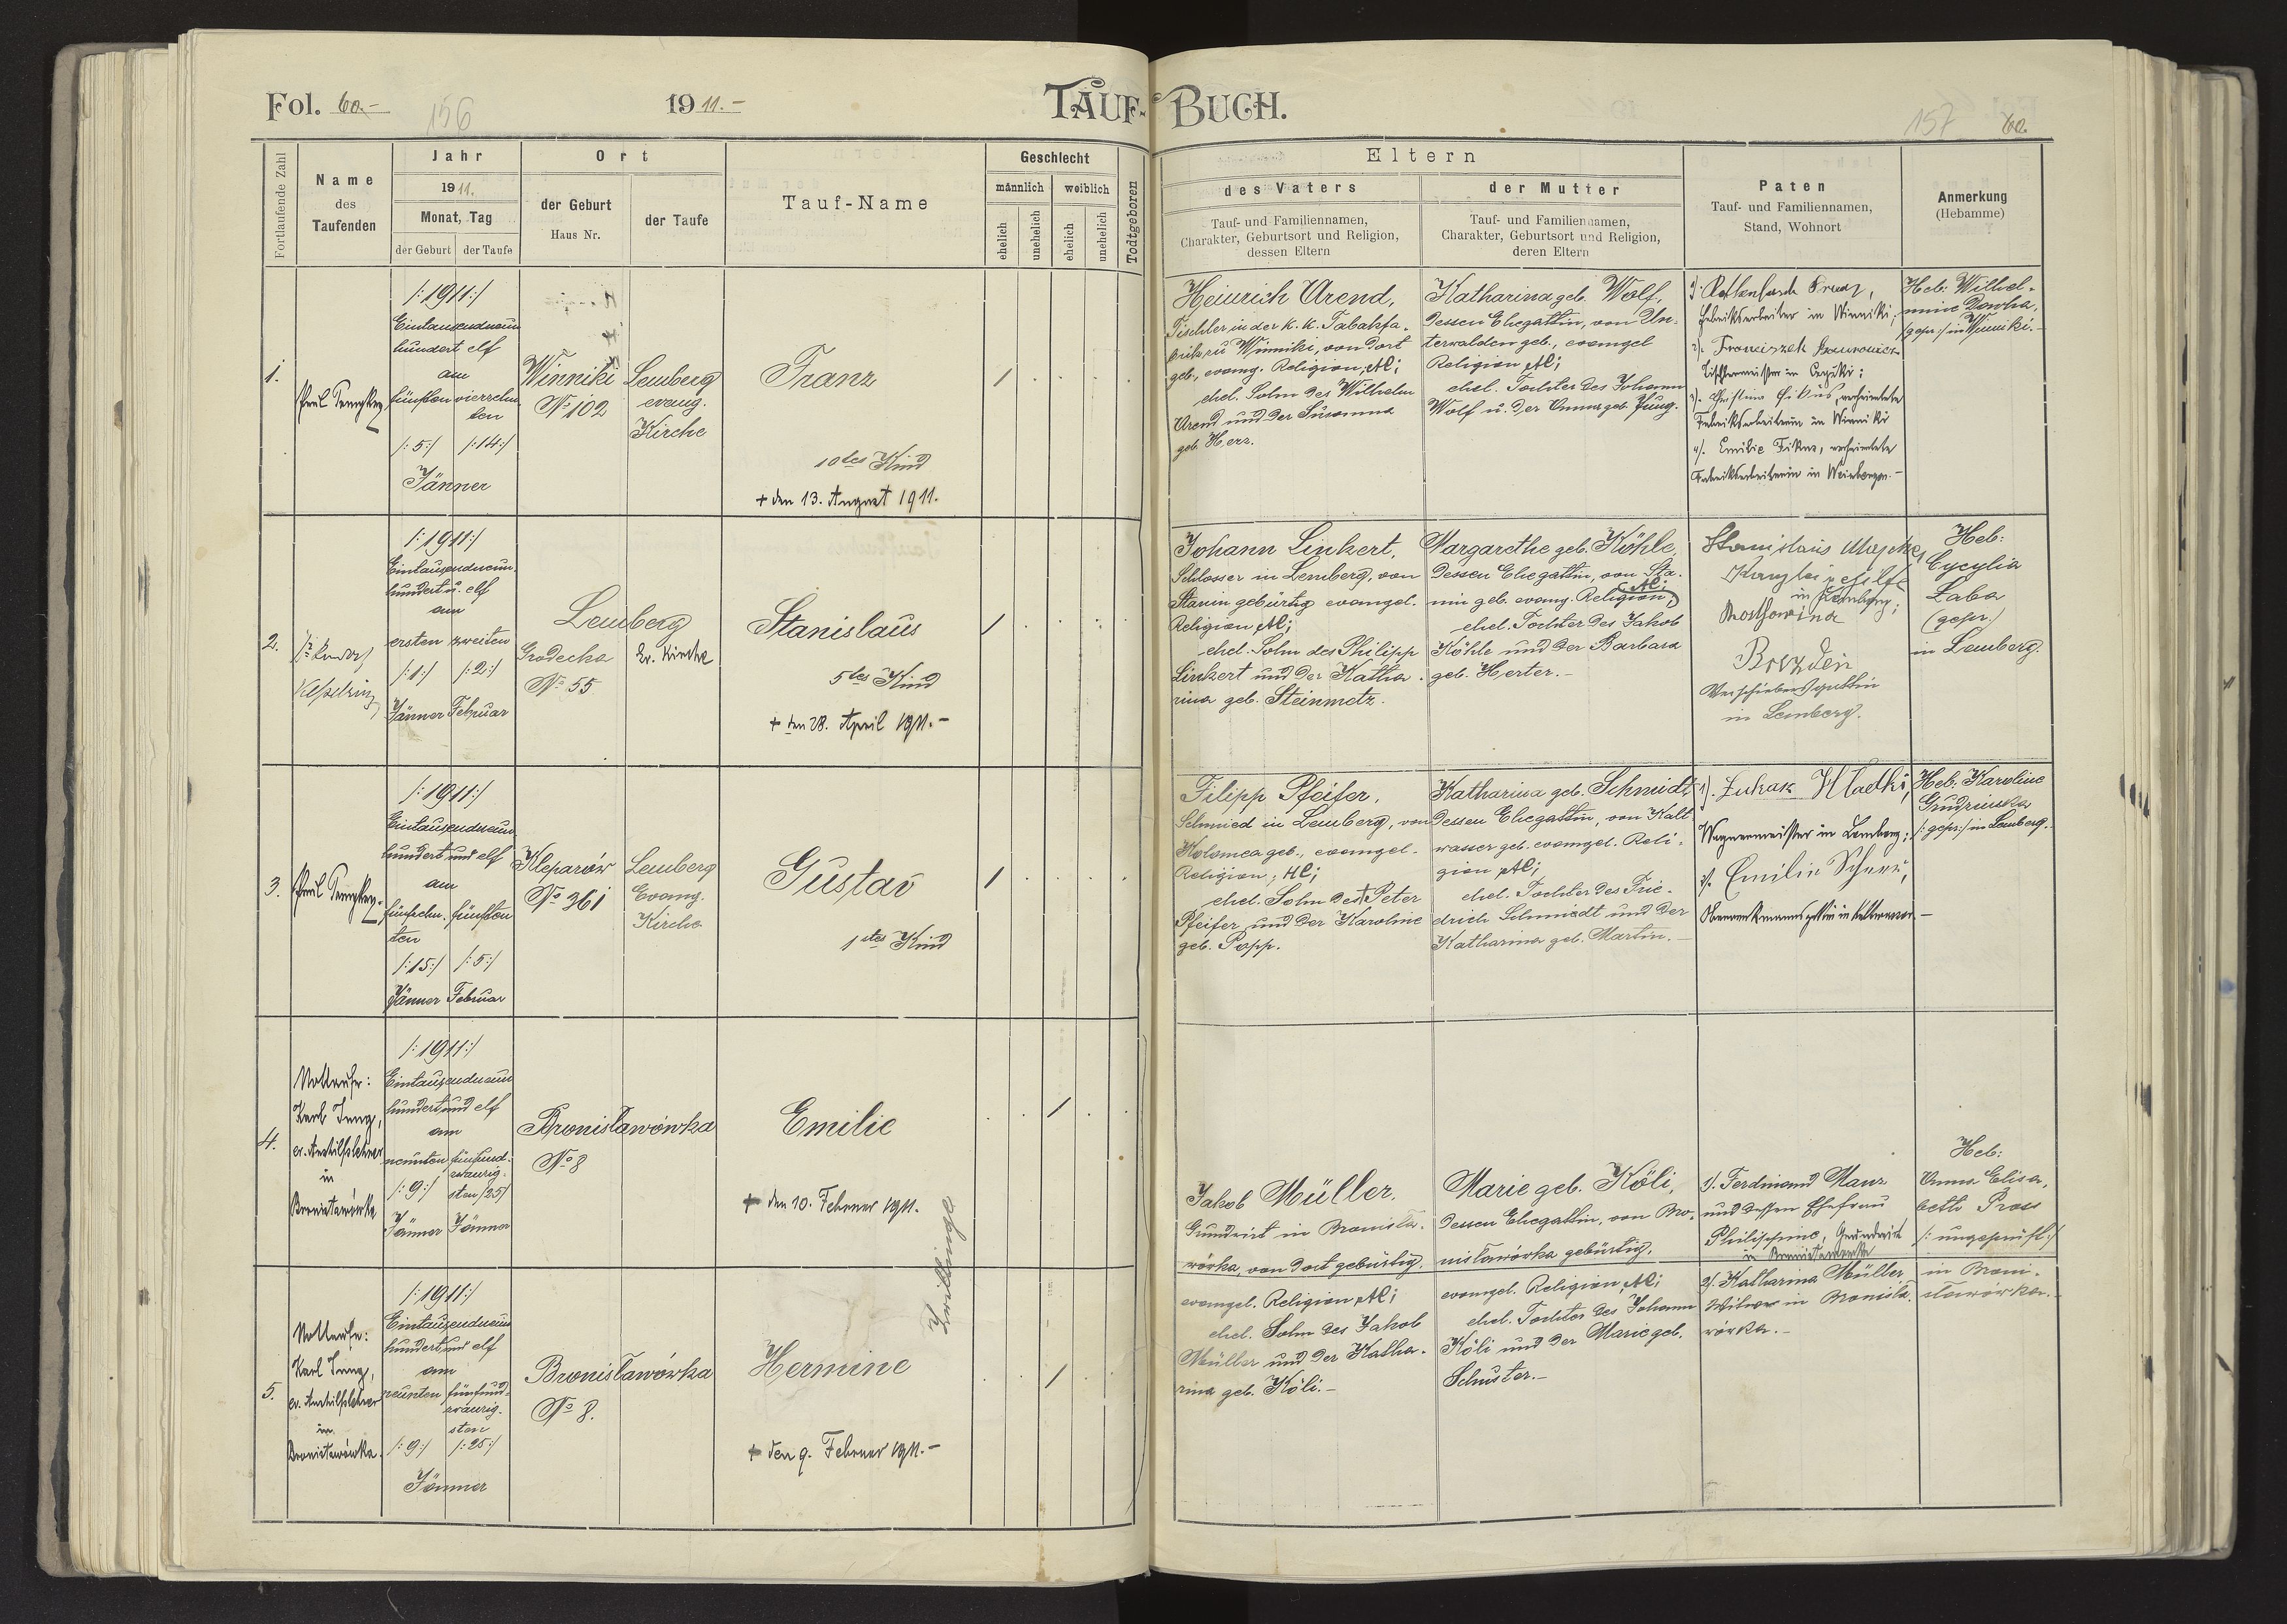 Fol. 60.-
156
1911.-
TAUF-BUCH.
157
60.
Fortlaufende Zahl
Name
des
Taufenden
Jahr
1911.
Monat, Tag
der Geburt
der Taufe
Ort
der Geburt
Haus Nr.
der Taufe
Tauf-Name
Geschlecht
männlich
weiblich
ehelich
unehelich
ehelich
unehelich
Todtgeboren
Eltern
des Vaters
Tauf- und Familiennamen,
Charakter, Geburtsort und Religion,
dessen Eltern
der Mutter
Tauf- und Familiennamen,
Charakter, Geburtsort und Religion,
deren Eltern
Paten
Tauf- und Familiennamen,
Stand, Wohnort
Anmerkung
(Hebamme)
1.
/:1911:/
Eintausendneun
hundert elf
am
fünften
vierzehn
ten
/:5:/
/:14:/
Jänner
Winniki
No 102
Lemberg
evang.
Kirche
Franz
10tes Kind
+ den 13. August 1911.
Heinrich Arend,
Tischler in der k. k. Tabakfa-
brik zu Winniki, von dort
geb., evang. Religion, AC;
ehel. Sohn des Wilhelm
Arend und der Susanna
geb. Herz.
Katharina geb. Wolf,
dessen Ehegattin, von Un-
terwalden geb., evangel
Religion AC;
ehel. Tochter des Johann
Wolf u. der Anna geb. Jung.
Fabriksarbeiter in Winniki;
2). Franciszek
Tischlermeister in
3). Christina Fikus, verheiratete
Fabriksarbeiterin in Winniki
4). Emilie Fikus, verheiratete
Fabriksarbeiterin in Weinbergen.-
Heb: Wilhel-
mine
/gepr:/ in Winniki.-
2.
/:1911:/
Eintausendneun-
hundert u. elf
am
ersten
zweiten
/:1:/
/:2:/
Jänner
Februar
Lemberg
Grodecka
No 55
Ev. Kirche
Stanislaus
5tes Kind
+ den 28. April 1911.-
Johann Linkert,
Schlosser in Lemberg, von
Stanin gebürtig evangel.
Religion AC;
ehel. Sohn des Philipp
Linkert und der Katha-
rina geb. Steinmetz.
Margarethe geb. Köhle,
dessen Ehegattin, von Sta-
nin geb. evang. Religion, AC;
ehel. Tochter des Jakob
Köhle und der Barbara
geb. Herter.-
Stanislaus
Kanzleigehilfe
in Lemberg;
Verschiebersgattin
in Lemberg.
Heb:
Cycylia
Zaba
(gepr.)
in Lemberg.
3.
/:1911:/
Eintausendneun
hundert und elf
am
fünfzehn-
ten
fünften
/:15:/
/:5:/
Jänner
Februar
Kleparów
No 361
Lemberg
Evang.
Kirche
Gustav
1stes Kind
Filipp Pfeifer,
Schmied in Lemberg, von
Kolomea geb., evangel.
Religion, HC;
ehel. Sohn des + Peter
Pfeifer und der Karoline
geb. Popp.
Katharina geb. Schmidt,
dessen Ehegattin, von Kalt
wasser geb. evangel. Reli-
gion AC;
ehel. Tochter des Frie-
drich Schmiedt und der
Katharina geb. Martin.-
1). Łukasz Hladki,
Wagnermeister in Lemberg;
2). Emilie
Heb: Karoline
Grudzinska
/:gepr:/ in Lemberg.-
4.
Nottaufe:
Karl Jung,
ev. Aushilfslehrer
in
Bronisławówka
/:1911:/
Eintausendneun
hundert und elf
am
neunten
fünfund-
zwanzig-
sten /25/
/:9:/
Jänner
Jänner
Bronisławówka
No 8
Emilie
+ den 10. Februar 1911.
Zwillinge
Jakob Müller,
Grundwirt in Bronisła-
wówka, von dort gebürtig.
evangel. Religion AC;
ehel. Sohn des Jakob
Müller und der Katha-
rina geb. Köli.-
Marie geb. Köli,
dessen Ehegattin, von Bro-
nisławówka gebürtig.
evangel. Religion AC;
ehel. Tochter des Johann
Köli und der Marie geb.
Schuster.-
1). Ferdinand Manz
und dessen Ehefrau
Philippine, Grundwirt
in Bronisławówka
2). Katharina Müller
Witwe in Bronisła-
wówka.-
Heb:
Anna Elisa-
beth Pross
/:ungeprüft:/
in Broni-
sławówka.-
5.
Nottaufe:
Karl Jung,
ev. Aushilfslehrer
in
Bronisławówka.
/:1911:/
Eintausendneun
hundert und elf
am
neunten
fünfund-
zwanzig-
sten
/:9:/
/:25:/
Jänner
Bronisławówka
No 8.
Hermine
+ den 9. Februar 1911.-